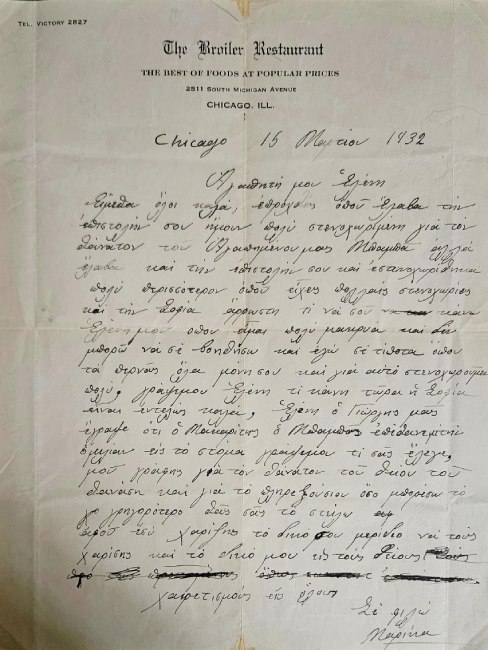 TEL. VICTORY 2827
The Broiler Restaurant
THE BEST OF FOODS AT POPULAR PRICES
2511 SOUTH MICHIGAN AVENUE
CHICAGO, ILL.
Chicago 15 Μαρτίου 1932
Αγαπητή μου Ελένη
Είμεθα όλοι καλά, επρόχθες όπου έλαβα την
επιστολήν σου ήμουν πολύ στενοχωριμένη γιά τον
θάνατον του Αγαπημένου μας Μπαμπα αλλά
έλαβα και την επιστολήν σου και εστενοχωρίθηκα
πολύ πρισσότερον οπού είχες πολλαίς στενοχωρίες
και την Σοφία άρροστη τι να σου κανω
Ελένη μου οπου είμαι πολύ μακρυά και δεν
μπορώ νά σε βοηθήσω και εγώ σε τίποτα όπου
τα περνάς όλα μόνη σου και γιά αυτό στενοχωρούμαι
πολύ, γράψε μου Ελένη τι κανη τώρα η Σοφία
είναι εντελώς καλά, Ελένη ο Γιώργης μας
έγραψε ότι ο Μακαρίτης ο Μπαμπας επέθανε με την
ομιλίαν εις το στόμα γραψε μου τι σας έλεγε,
μου γράφης γιά τον θάνατον του θείου του
Θανάση και για το πληρεξούσιον όσο μπορέσω το
γρηγορότερο θα σας το στείλω
αφού εσύ χαρίζης το δικό σου μερίδιο να τους
χαρίσης και τό δικό μου εις τους θείους
χαιρετισμούς εις όλους
Σε φιλώ
Μαρίκα